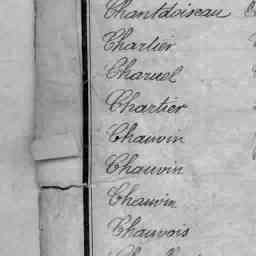 Chantdoiseau
Chartier
Charuel
Chartier
Chauvin
Chauvin
Chauvin
Chauvois